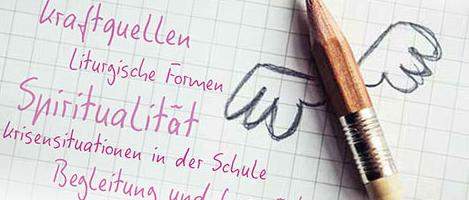 Kraftquellen
Liturgische Formen
Spiritualität
Krisensituationen in der Schule
Begleitung und